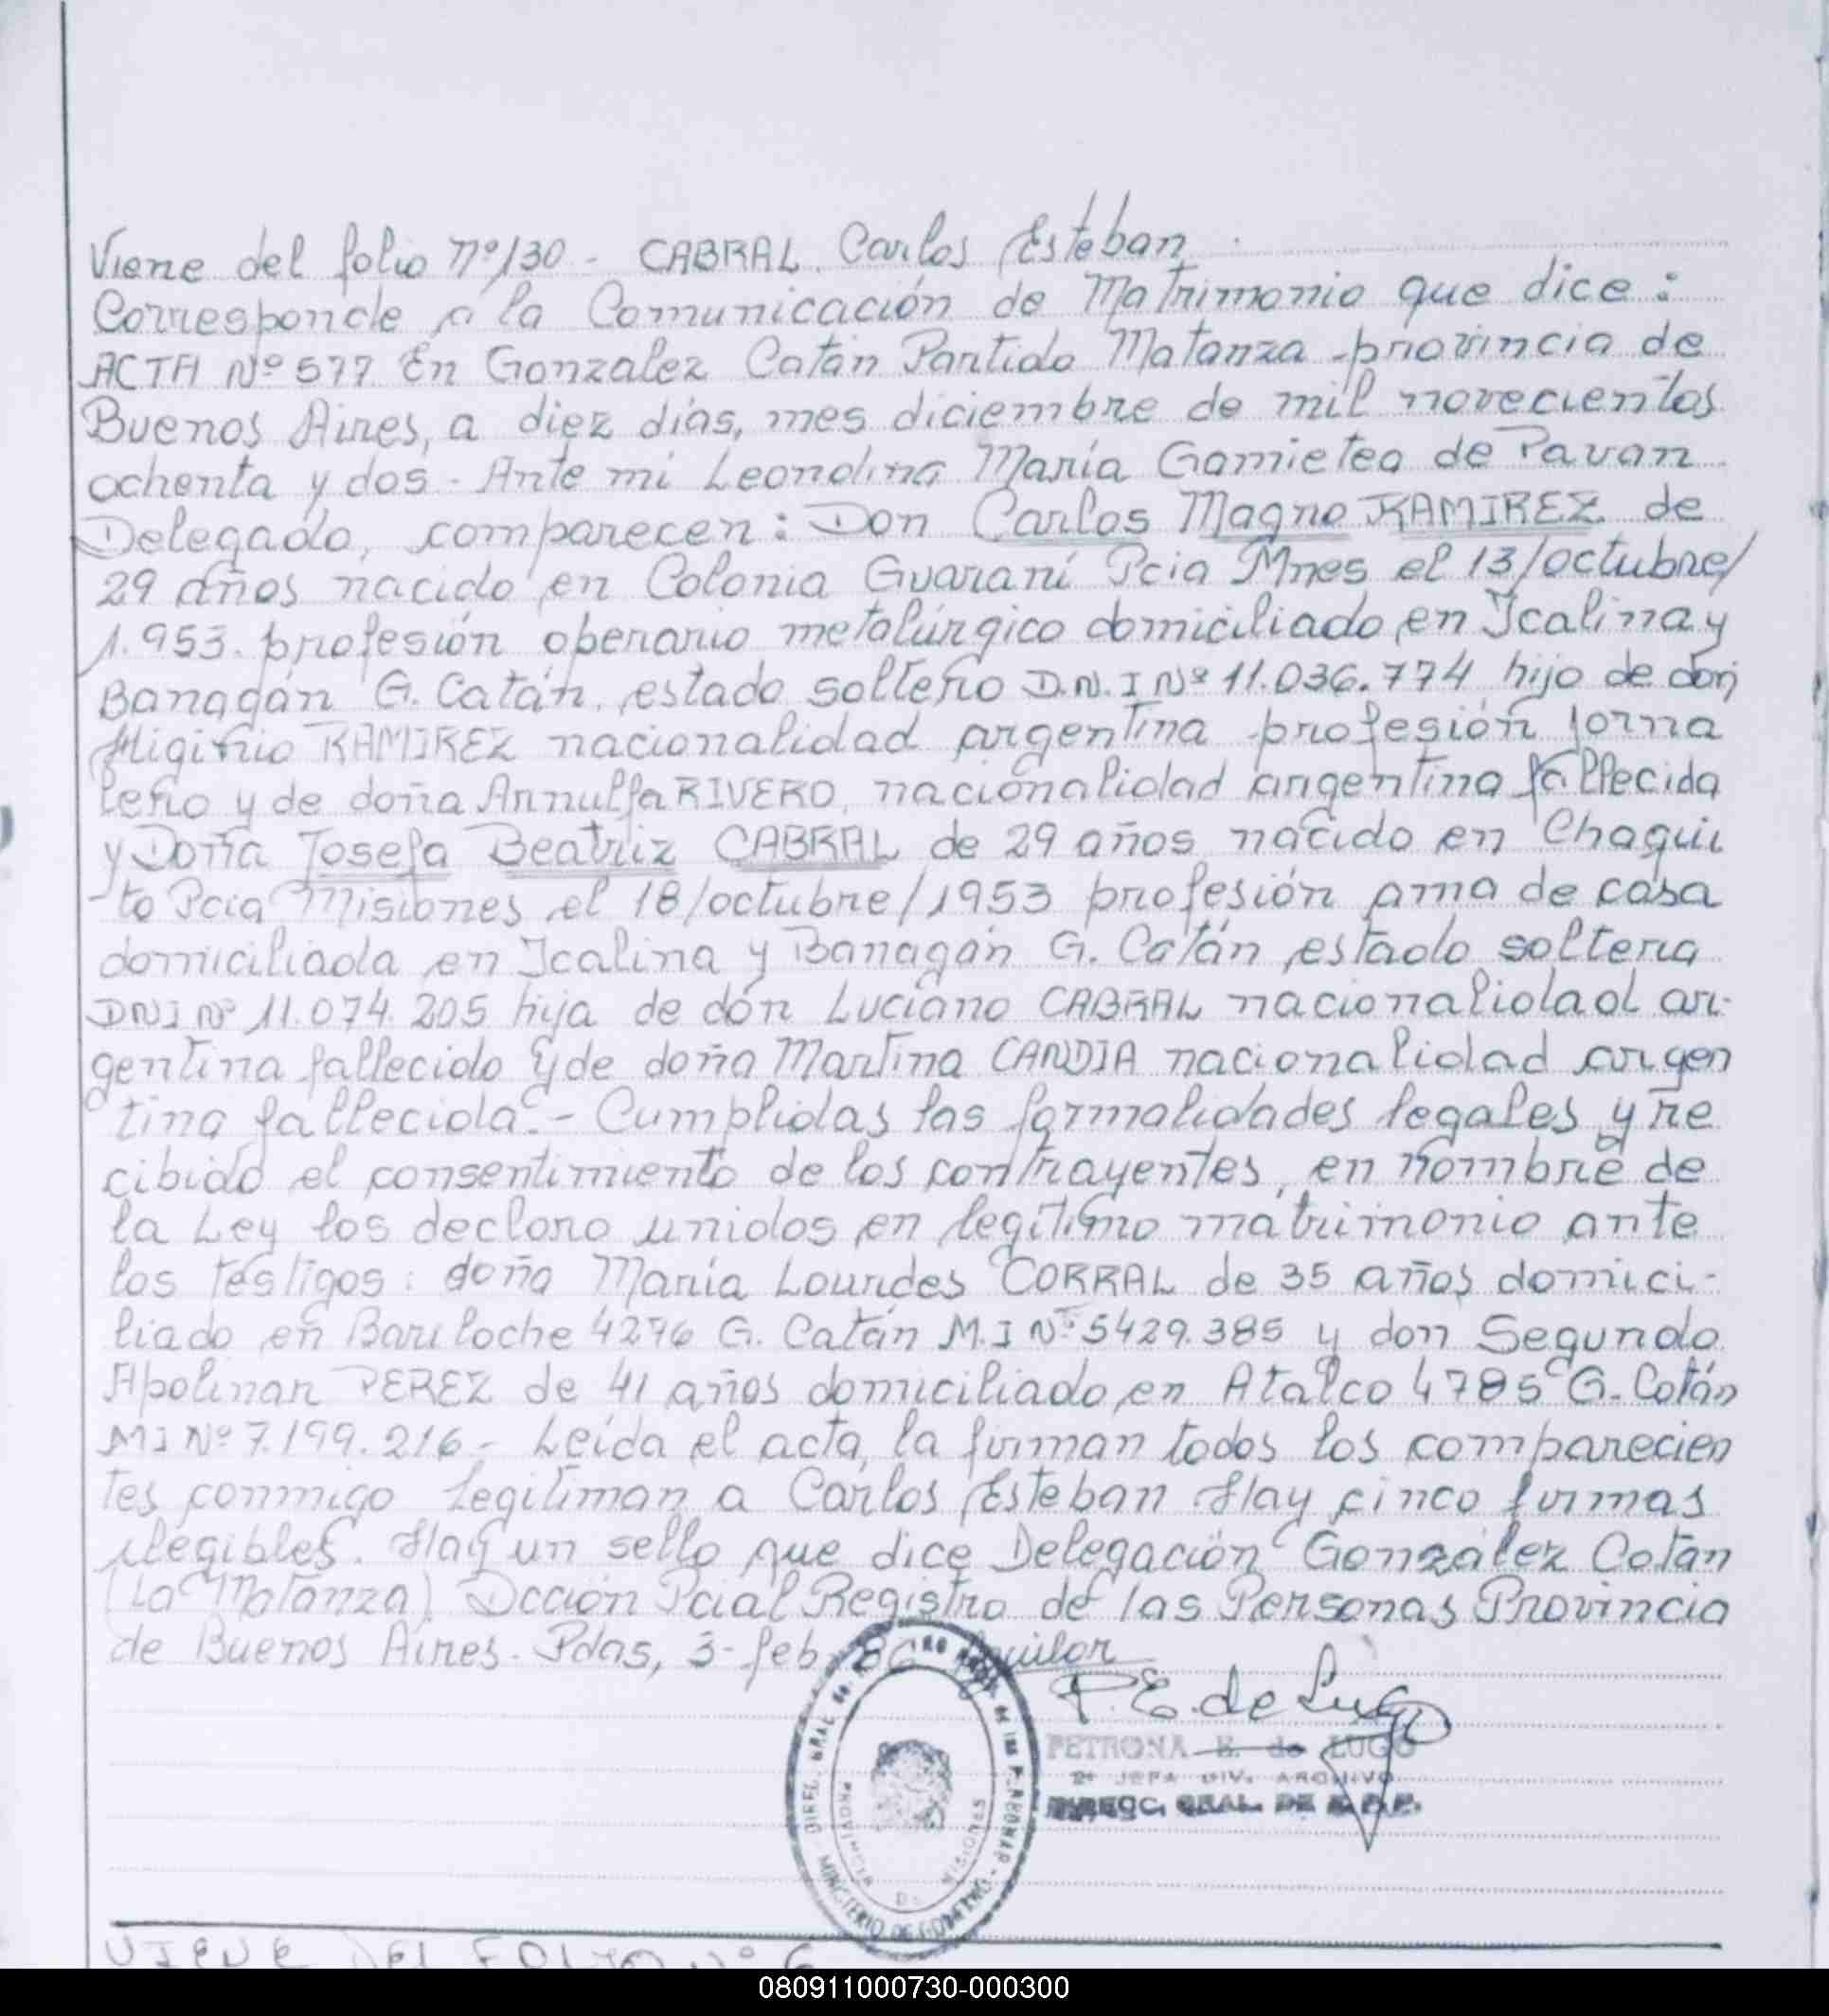 Viene del folio Nº 130 - CABRAL Carlos Esteban
Corresponde a la Comunicación de Matrimonio que dice:
ACTA Nº 577 En Gonzalez Catán Partido Matanza provincia de
Buenos Aires, a diez días, mes diciembre de mil novecientos
ochenta y dos - Ante mi Leondina María Gamietea de Pavan
Delegado, comparecen: Don Carlos Magno RAMIREZ de
29 años nacido en Colonia Guaraní Pcia Mnes el 13/octubre/
1.953. profesión operario metalúrgico domiciliado en Icalina y
Banagán G. Catán, estado soltero D.N.I Nº 11.036.774 hijo de don
Higinio RAMIREZ nacionalidad argentina profesión jorna
lero y de doña Arnulfa RIVERO, nacionalidad argentina fallecida
y Doña Josefa Beatriz CABRAL de 29 años nacido en Chaqui
to Pcia Misiones el 18/octubre/1953 profesión ama de casa
domiciliada en Icalina y Banagán G. Catán estado soltera
DNI Nº 11.074.205 hija de dón Luciano CABRAL nacionalidad ar-
gentina fallecido y de doña Martina CANDIA nacionalidad argen
tina fallecida.- Cumplidas las formalidades legales y re
cibido el consentimiento de los contrayentes, en nombre de
la Ley los declaro unidos en legítimo matrimonio ante
los testigos: doña María Lourdes CORRAL de 35 años domici-
liado en Bariloche 4276 G. Catán M.I Nº 5429.385 y don Segundo
Apolinar PEREZ de 41 años domiciliado en Atalco 4785 G. Catán
MI Nº 7.199.216.- Leída el acta, la firman todos los comparecien
tes conmigo Legitiman a Carlos Esteban Hay cinco firmas
ilegibles. Hay un sello que dice Delegación González Catán
(La Matanza) Dcción Pcial Registro de las Personas Provincia
de Buenos Aires. Pdas, 3-feb-86
P.E. de Lugo
PETRONA E. de LUGO
2º JEFA DIV. ARCHIVO
DIRECC. GRAL. DE R.P.P.
MINISTERIO DE GOBIERNO
PROVINCIA DE MISIONES
VIENE DEL FOLIO Nº 6
080911000730-000300